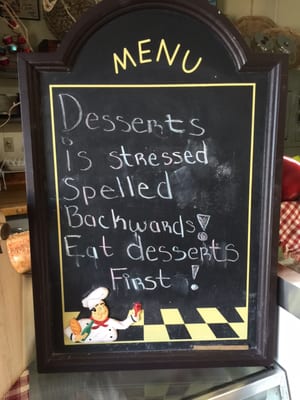 MENU
Desserts
is stressed
Spelled
Backwards!
Eat desserts
First!